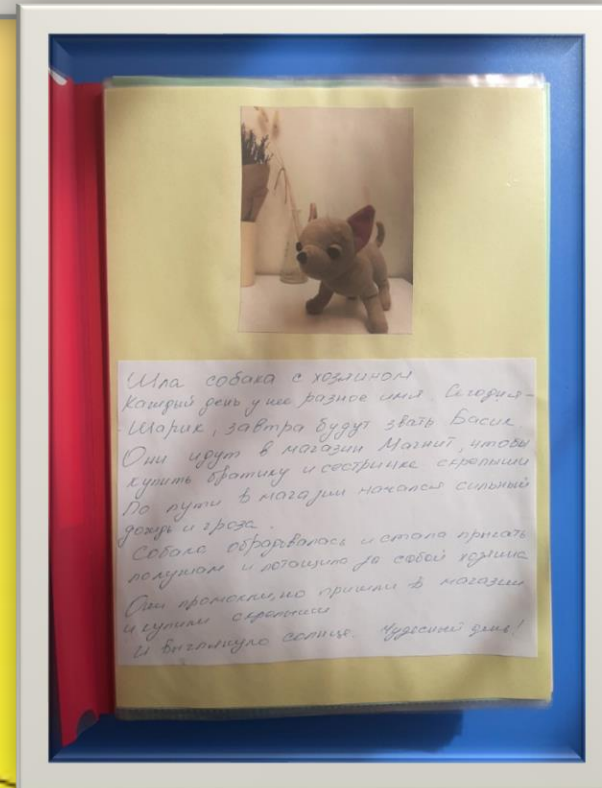 Шла собака с хозяином
Каждый день у нее разное имя. Сегодня -
Шарик, завтра будут звать Басик.
Они идут в магазин Магнит, чтобы
купить братику и сестринке скрепыши
По пути в магазин начался сильный
дождь и гроза.
Собака обрадовалась и стала прыгать
по лужам и потащила за собой хозяина
Они промокли, но пришли в магазин
и купили скрепыши
И выглянуло солнце. Чудесный день!